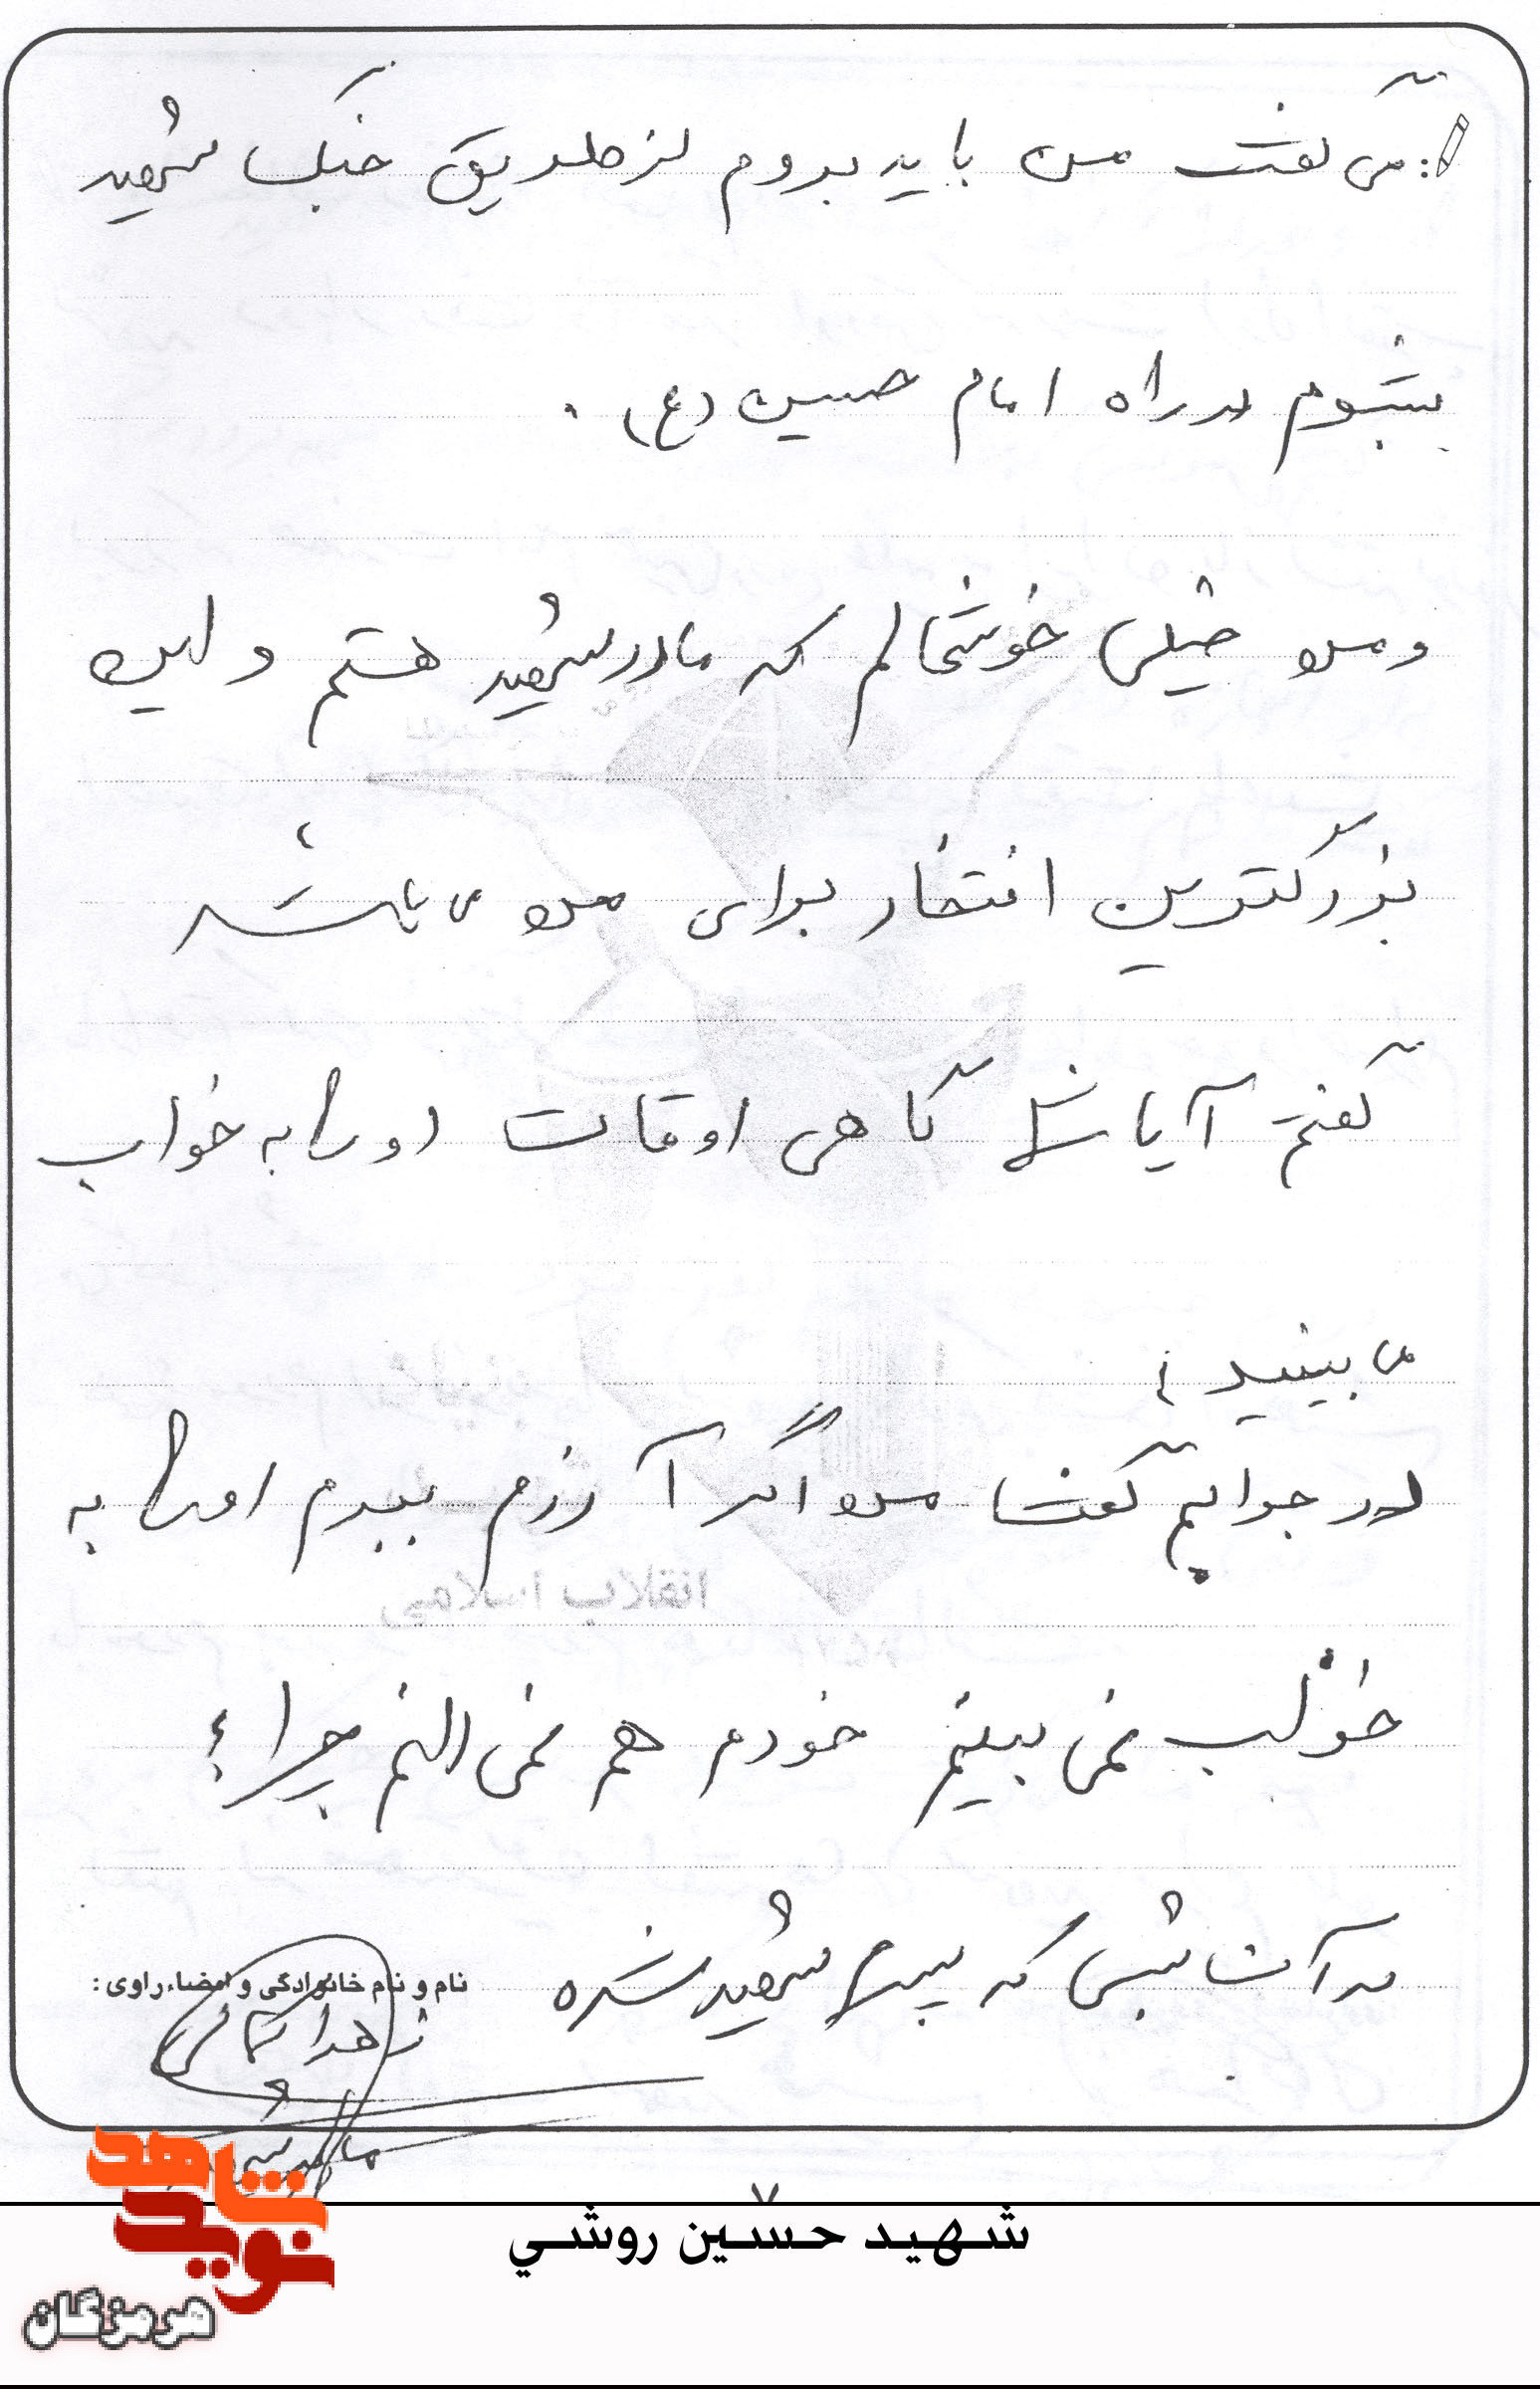 می گفت من باید بروم از طریق جنگ شهید
بشوم در راه امام حسین (ع) .
و من خیلی خوشحالم که مادر شهید هستم و این
بزرگترین افتخار برای من می باشد
گفتم آیا شما گاهی اوقات او را به خواب
می بینید ؟
در جوابم گفت من اگر آرزم ببرم او را به
خواب نمی بینم خودم هم نمی دانم چرا ؟
در آن شبی که پسرم شهید شده
نام و نام خانوادگی و امضاء راوی :
زهرا
مادر
۷
شهید حسین روشی
شاهد
نوید
هرمزگان
انقلاب اسلامی